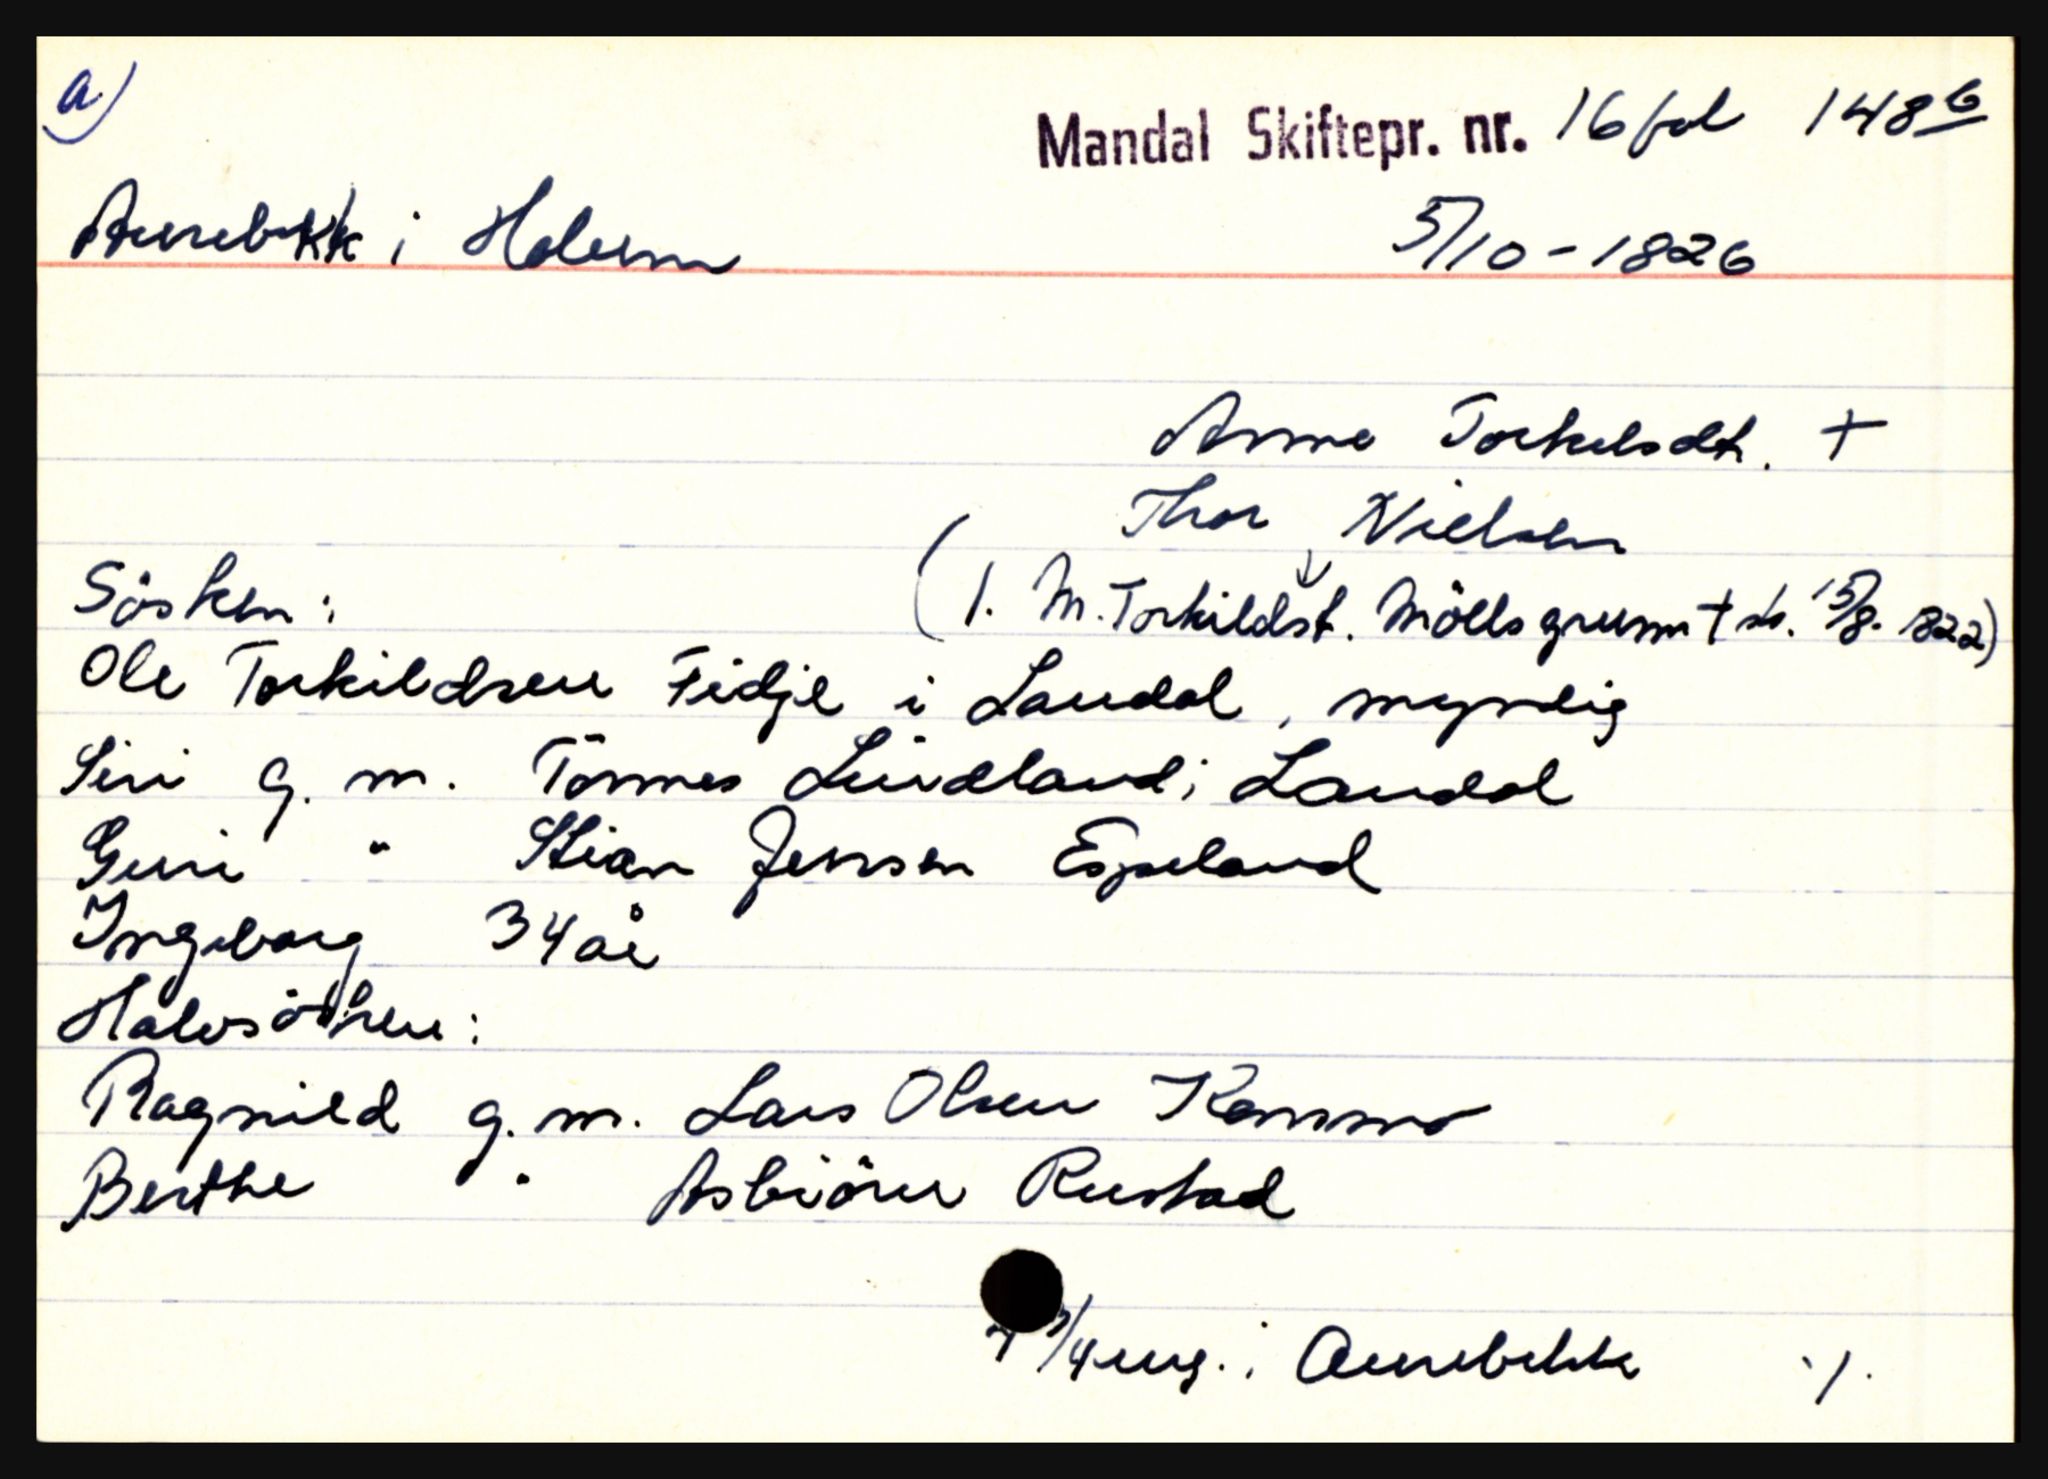 a)
Mandal Skiftepr. nr. 16 fol 148 b
Aurebekk i Holum 5/10-1826
Anne Torkelsdt. +
Thor Nielsen
Sösken: (1. M. Torkildst. Mölls grunn + sk. 15/8. 1822)
Ole Torkildsen Fidje i Laudal, myndig
Siri g. m. Tönnes Lindland i Laudal
Guri " Stian Jensen Espeland
Ingeborg 34 år
Halvsösken:
Ragnild g. m. Lars Olsen
Berthe " Asbiörn Rustad
i Aurebekk ./.